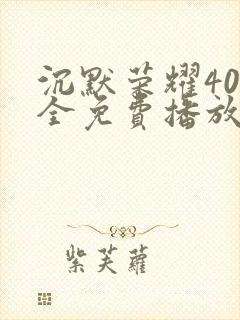 沉默荣耀40
全免費播放
紫芙蘿